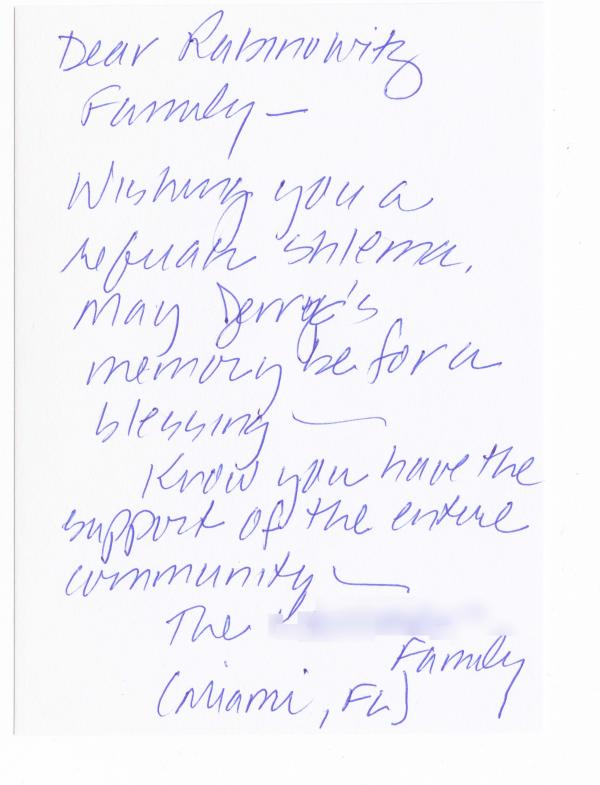 Dear Rabinowitz
Family—
Wishing you a
refuah shlema.
May Jerry's
memory be for a
blessing —
Know you have the
support of the entire
community —
The
Family
(Miami, FL)